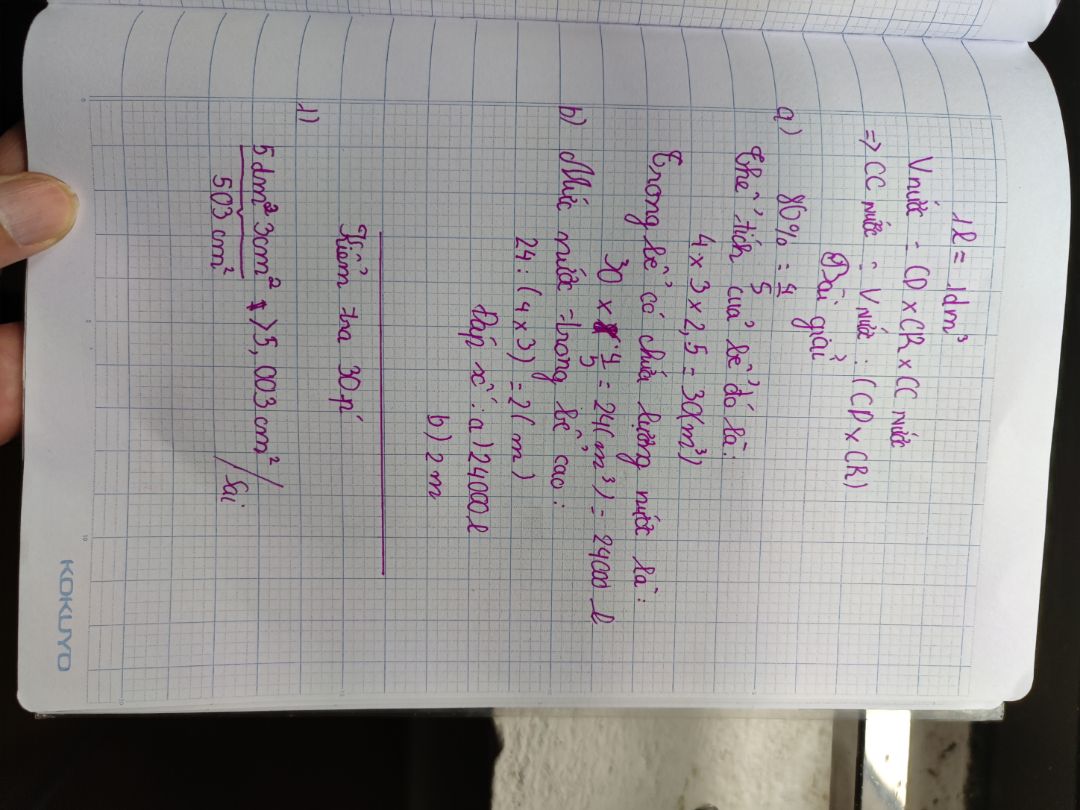 1l = 1dm³
V nước = CD x CR x CC nước
=> CC nước = V nước : (CD x CR)
Bài giải
a) 80% = 4/5
Thể tích của bể đó là:
4 x 3 x 2,5 = 30(m³)
Trong bể có chứa lượng nước là:
30 x 4/5 = 24(m³) = 24000 l
b) Mức nước trong bể cao:
24 : (4 x 3) = 2(m)
Đáp số: a) 24000 l
b) 2 m
Kiểm tra 30 p'
1)
5dm² 3cm² > 5,003 cm² / Sai
503 cm²
KOKUYO